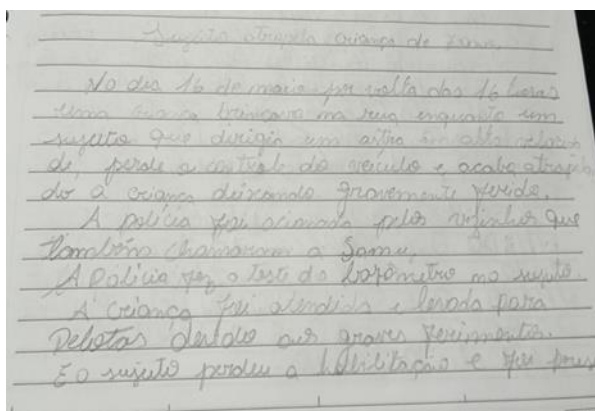 Sujeito atropela criança de
No dia 16 de maio por volta das 16 horas
uma criança brincava na rua enquanto um
sujeito que dirigia um astra em alta velocida
de, perde o controle do veículo e acaba atropelan
do a criança deixando gravemente ferido.
A polícia foi acionada pelos vizinhos que
também chamaram a Samu,
A Polícia fez o teste do bafômetro no sujeito.
A criança foi atendida e levada para
Pelotas devido aos graves ferimentos.
E o sujeito perdeu a habilitação e foi